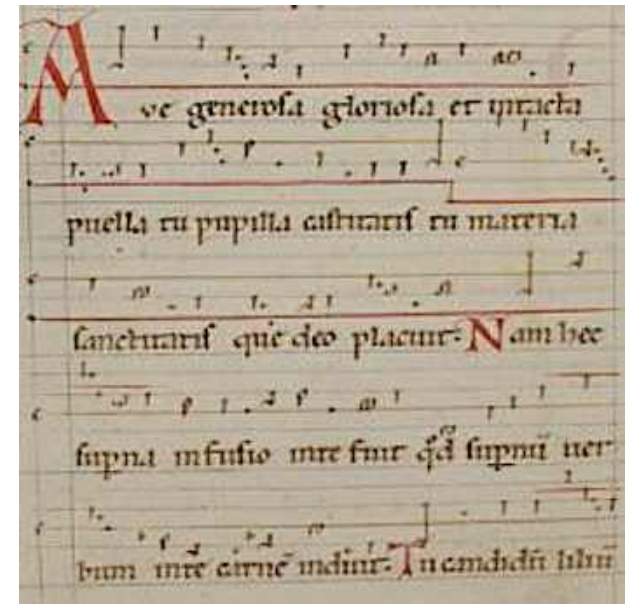 Ave generosa gloriosa et intacta
puella tu pupilla castitatis tu materia
sanctitatis que deo placuit. Nam hec
supna infusio in te fuit qd supnū ver
bum in te carnē induit. Tu candidū liliū